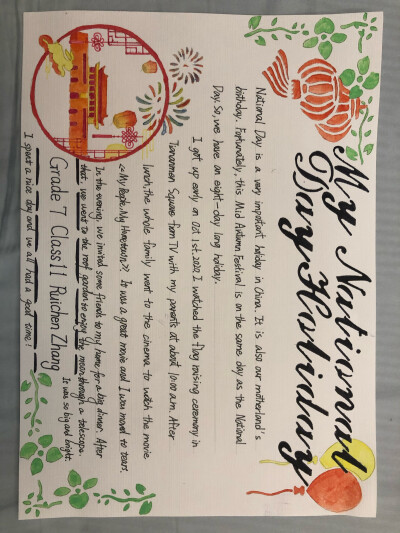 My National
Day Holiday
National Day is a very important holiday in China. It is also our motherland's
birthday. Fortunately, this Mid Autumn Festival is on the same day as the National
Day. So, we have an eight-day long holiday.
I got up early on Oct. 1st, 2020, I watched the flag raising ceremony in
Tiananmen Square from TV with my parents at about 10:00 a.m. After
lunch, the whole family went to the cinema to watch the movie
<<My People, My Hometown>>. It was a great movie and I was moved to tears.
In the evening, we invited some friends to my home for a big dinner. After
that, we went to the roof garden to enjoy the moon through a telescope.
It was so big and bright.
Grade 7 Class 11 Ruichen Zhang
I spent a nice day and we all had a good time!